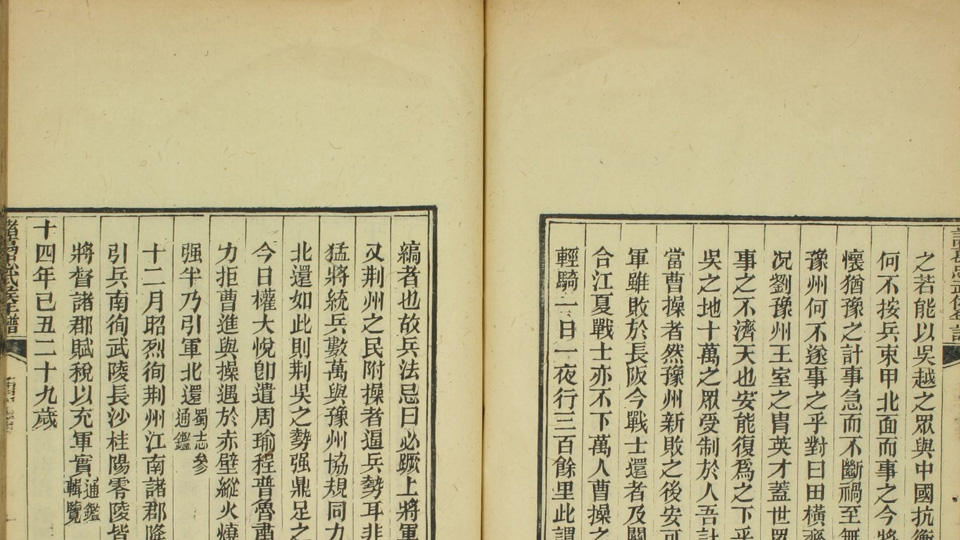 之若能以吳越之眾與中國抗衡
何不按兵束甲北面而事之今將
懷猶豫之計事急而不斷禍至無
豫州何不遂事之乎對曰田橫齊
况劉豫州王室之胄英才蓋世眾
事之不濟天也安能復爲之下乎
吳之地十萬之眾受制於人吾計
當曹操者然豫州新敗之後安可
軍雖敗於長阪今戰士還者及關
合江夏戰士亦不下萬人曹操之
輕騎一日一夜行三百餘里此謂
縞者也故兵法忌曰必蹶上將軍
又荆州之民附操者逼兵勢耳非
猛將統兵數萬與豫州協規同力
北還如此則荆吳之勢强鼎足之
今日權大悅卽遣周瑜程普魯肅
力拒曹進與操遇於赤壁縱火燒
强半乃引軍北還蜀志參通鑑
十二月昭烈徇荆州江南諸郡降
引兵南徇武陵長沙桂陽零陵皆
將督諸郡賦稅以充軍實通鑑輯覽
十四年己丑二十九歲